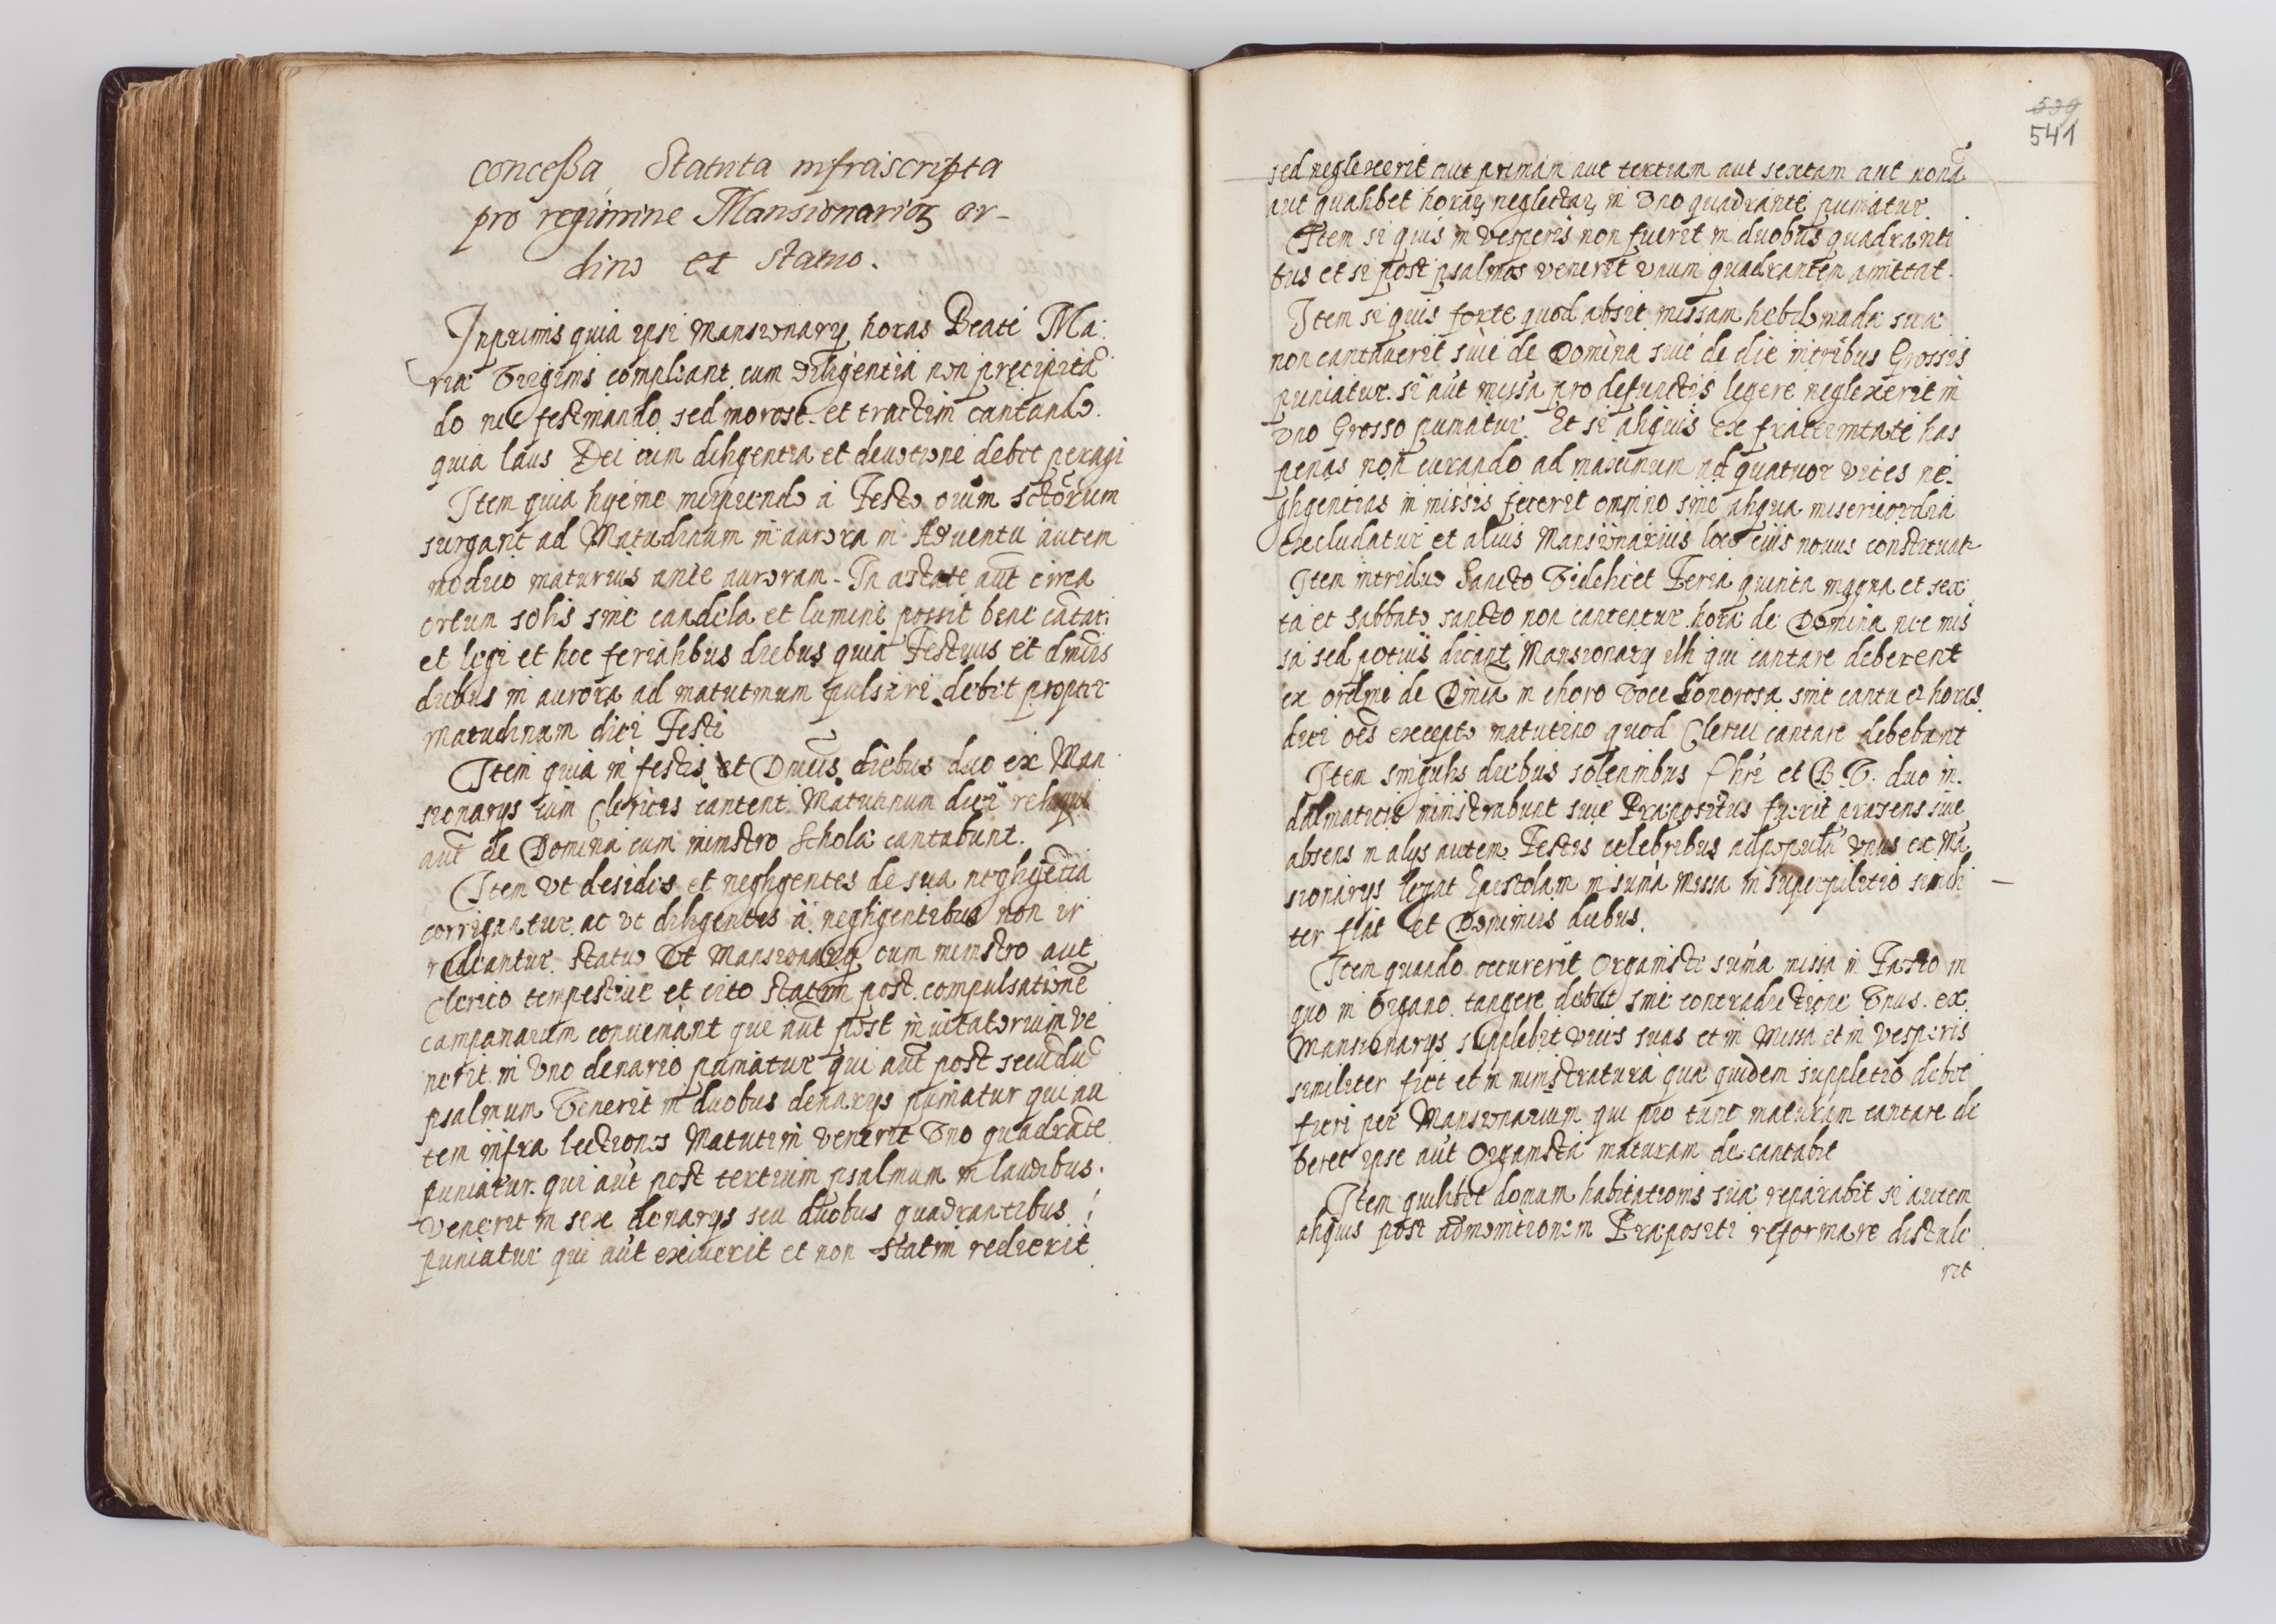 conceßa Statuta infrascripta
pro regimine Mansionarioꝝ or-
dino et statuo.
Inprimis quia ipsi Mansionarÿ horas Beatę Ma:
rię Virginis compleant cum diligentia non pręcipitā
do nec festinando sed morose et tractim cantando.
quia laus Dei cum diligentia et deuotione debet peragi
Item quia hyeme incipiendo à Festo oium sctorum
surgant ad Matudinum in aurora in Aduentu autem
modico maturius ante auroram. In ęstate aūt circa
ortum solis sine candela et lumine possit bene cātari
et legi et hoc ferialibus diebus quia Festiuus et dnicis
diebus in aurora ad matutinum pulsari debet propter
Matudinam dici Festi
Item quia in festis et Dnicis diebus duo ex Man
sionarÿs cum Clericis cantent Matutinum dici reliqui
aūt de Domina cum ministro Scholę cantabunt.
Item vt desides et negligentes de sua negligētia
corrigantur ac vt diligentes à negligentibus non ir
redeantur statuo Vt Mansionarÿ cum ministro aut
Clerico tempestiue et cito statim post compulsationē
campanarum conueniant qui aūt post inuitatorium ve
nerit in Vno denario puniatur qui aūt post secūdū
psalmum Venerit in duobus denarÿs puniatur qui au
tem infra lectiones Matutini venerit Vno quadrāte
puniatur. qui aūt post tertium psalmum in laudibus
venerit in sex denarÿs seu duobus quadrantibus
puniatur qui aūt exiuerit et non statim redierit
539
541
sed neglexerit aut primam aut tertiam aut sextam aut nonā
aut qualibet horaꝝ neglectaꝝ in Vno quadrante puniatur.
Item si quis in vesperis non fuerit in duobus quadranti
bus et si post psalmos venerit vnum quadrantem amittat.
Item si quis forte quod absit missam hebdomada sua
non cantauerit siue de Domina siue de die intribus Grossis
puniatur. si aūt missā pro defunctis legere neglexerit in
vno Grosso puniatur. Et si aliquis ex fraternitate has
penas non curando ad maximum ad quatuor vices ne:
gligentias in missis fecerit omnino sine aliqua misericordia
Excludatur et alius Mansionarius loco eius nouus constituat
Item intriduo Sancto Videlicet Feria quinta magna et sex
ta et Sabbato sancto non cantentur horę de Domina nec mis
sa sed potius dicant Mansionarÿ illi qui cantare deberent
ex ordine de Dnica in choro Voce Sonorosa sine cantu et horas
dici oēs excepto matutino quod Clerici cantare debebant
Item singulis diebus solennibus Chri et B. V. duo in
dalmaticis ministrabunt siue Prępositus fuerit pręsens siue
absens in alÿs autem Festis celebribus ad populū vnus ex Mā
sionarÿs legat Epistolam in sumā Missa in superpelitio simili
ter fiat et Dominicis diebus.
Item quando occurerit Organistę sumā missa in Festo in
quo in organo tangere debet sine contradictione Vnus ex
Mansionarÿs supplebit vices suas et in Missa et in vesperis
similiter fiet et in ministratura quę quidem suppletio debet
fieri per Mansionarium qui pro tunc maturam cantare de
beret ipse aūt Organista maturam de cantabit
Item quilibet domum habitationis suę reparabit si autem
aliquis post admonitionem Prępositi reformare distule
rit